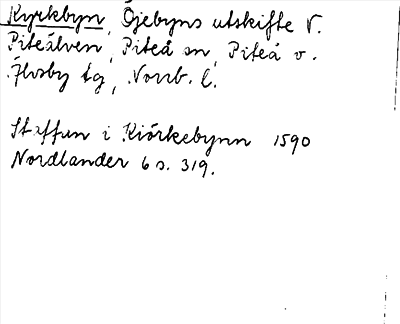 Kyrkbyn, Öjebyns utskifte V.
Piteälven, Piteå sn, Piteå v.
Älvsby tg, Norrb. l.
Staffun i Kiörkebynn 1590
Nordlander 6 s. 319.